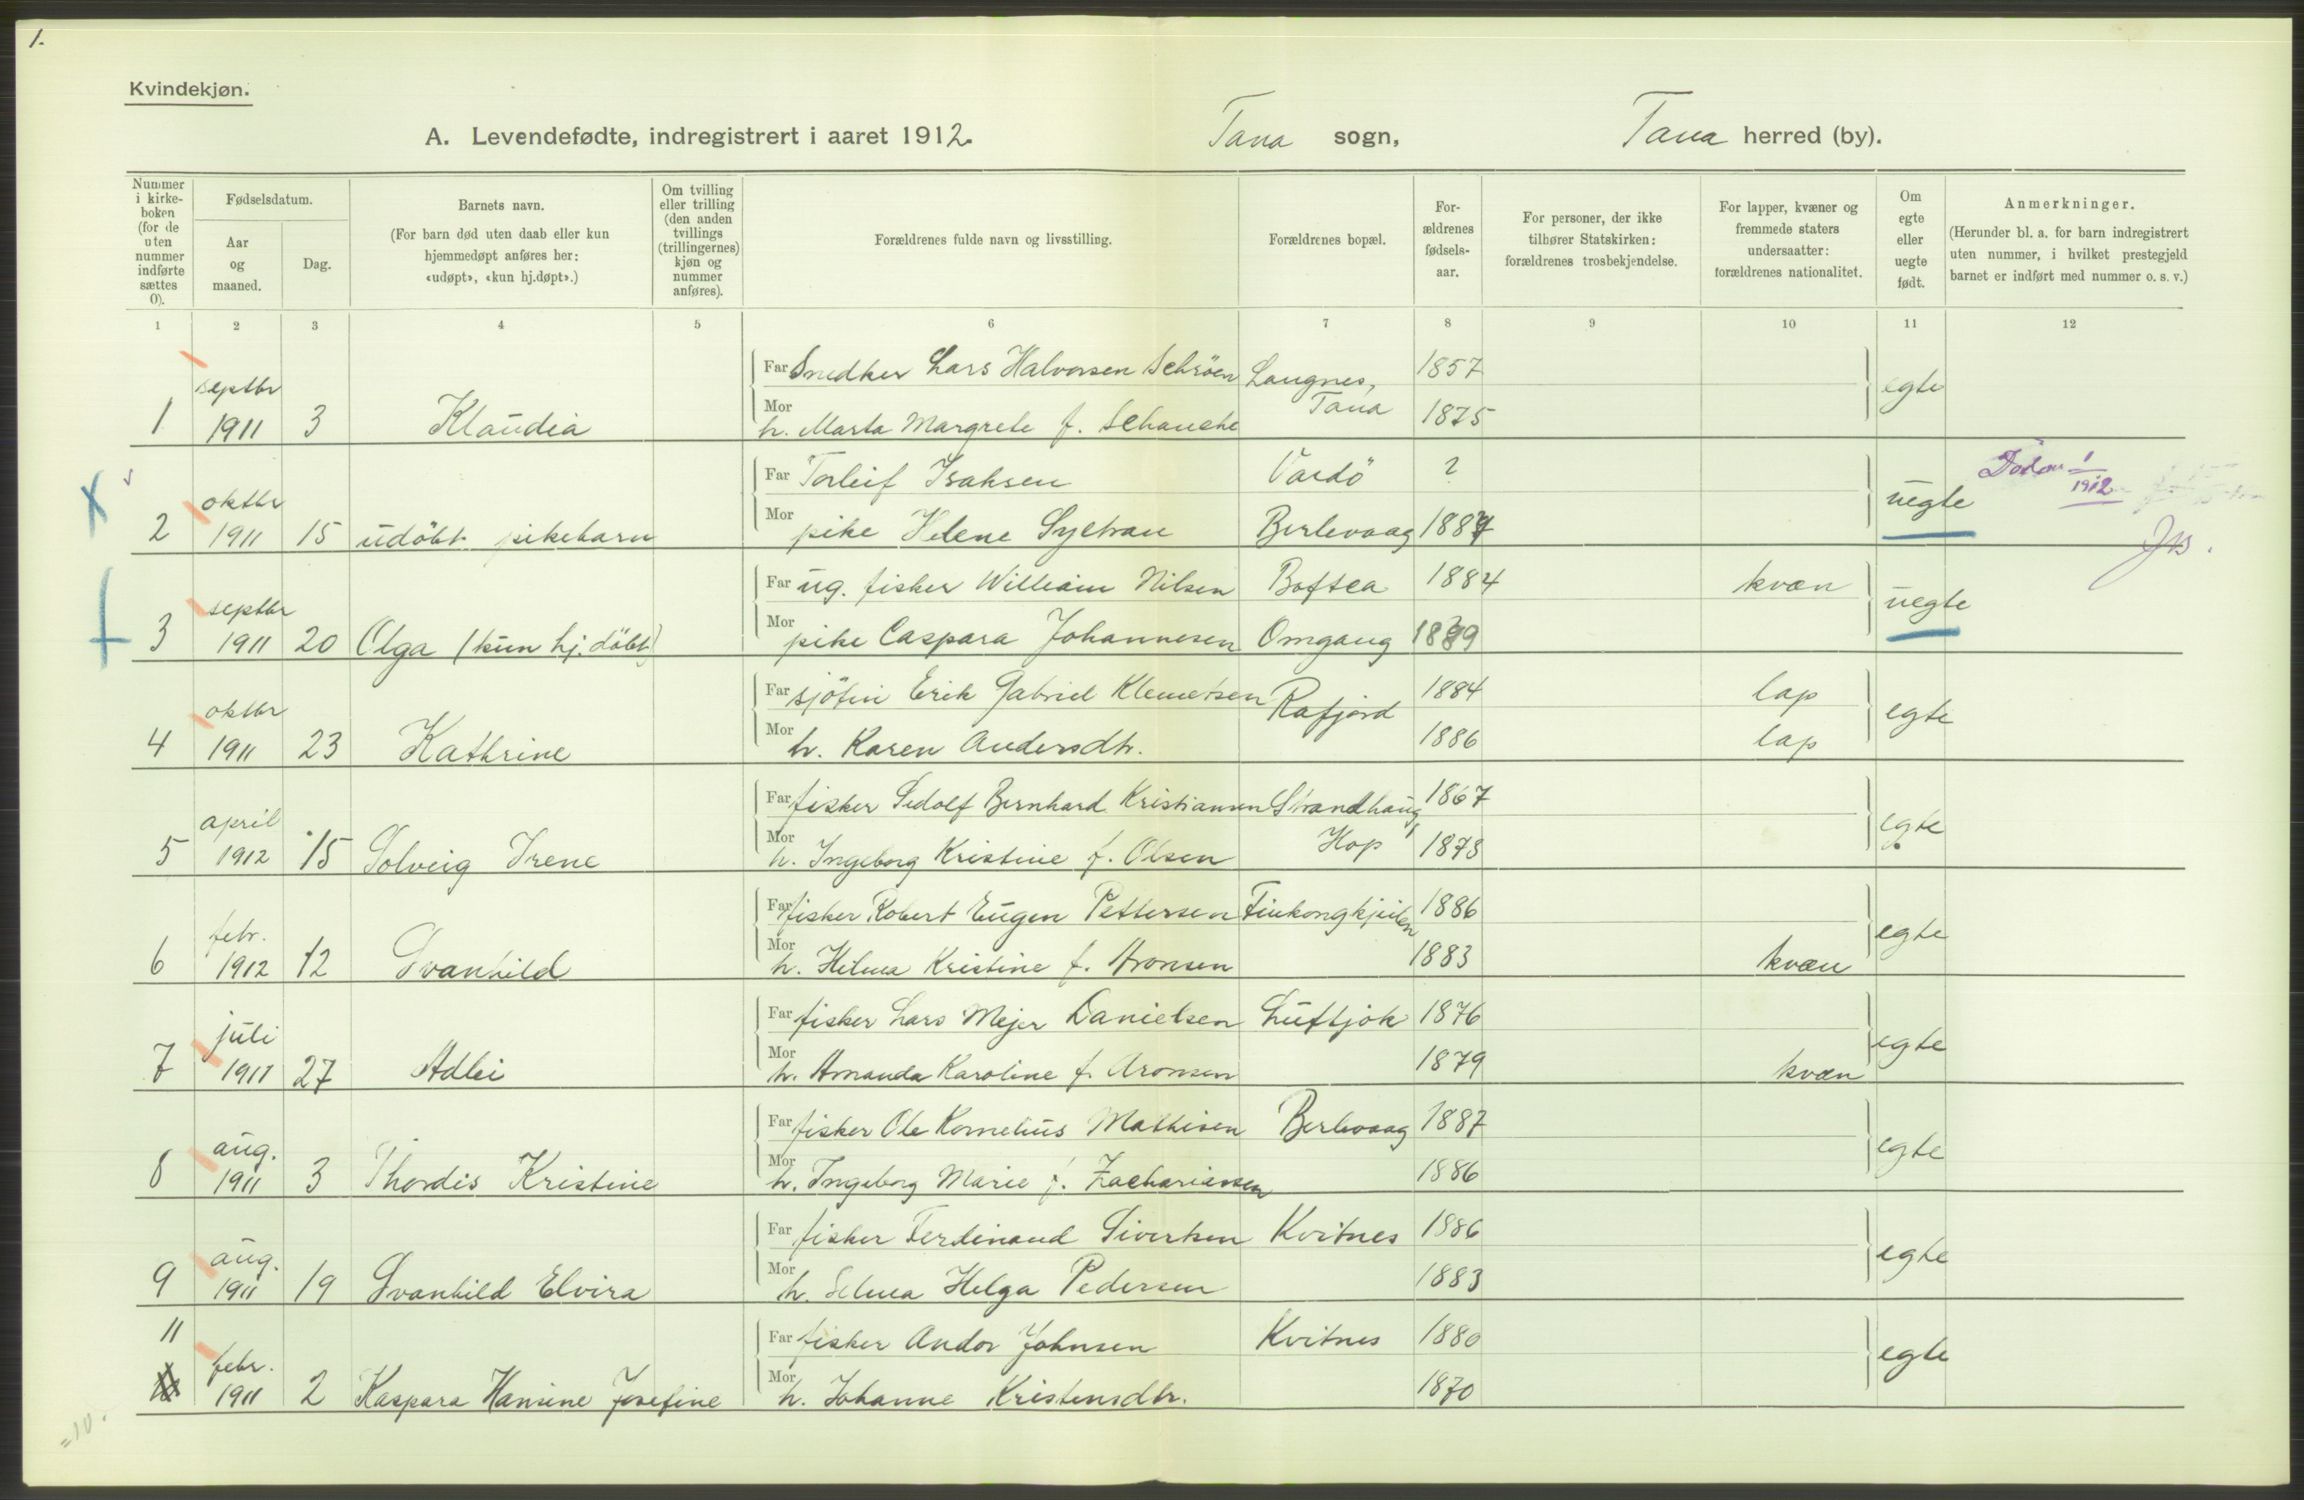 1.
Kvindekjøn.
A. Levendefødte, indregistrert i aaret 1912. Tana sogn, Tana herred (by).
Nummer i kirkeboken (for de uten nummer indførte sættes 0).
Fødselsdatum.
Aar og maaned.
Dag.
Barnets navn.
(For barn død uten daab eller kun hjemmedøpt anføres her: «udøpt», «kun hj.døpt».)
Om tvilling eller trilling (den anden tvillings (trillingernes) kjøn og nummer anføres).
Forældrenes fulde navn og livsstilling.
Forældrenes bopæl.
For-ældrenes fødsels-aar.
For personer, der ikke tilhører Statskirken: forældrenes trosbekjendelse.
For lapper, kvæner og fremmede staters undersaatter: forældrenes nationalitet.
Om egte eller uegte født.
Anmerkninger.
(Herunder bl. a. for barn indregistrert uten nummer, i hvilket prestegjeld barnet er indført med nummer o. s. v.)
1 2 3 4 5 6 7 8 9 10 11 12
septbr Far Snedker Lars Halvorsen Schröen Langnes, 1857 egte
1 1911 3 Klaudia Mor h. Marta Margrete f. Schanche Tana 1875
oktbr Far Torleif Isaksen Vardö ? uegte 1/1912
2 1911 15 udöbt pikebarn Mor pike Helene Berlevaag 1887
septbr Far ug. fisker William Nilsen Boftsa 1884 kvæn uegte
3 1911 20 Olga (kun hj. döbt) Mor pike Caspara Johannesen Omgang 1889
oktbr Far sjöfin Erik Gabriel Klemetsen Rafjord 1884 lap egte
4 1911 23 Kathrine Mor h. Karen Andersdtr. 1886 lap
april Far fisker Sedolf Bernhard Kristiansen Strandhaug, 1867 egte
5 1912 15 Solveig Irene Mor h. Ingeborg Kristine f. Olsen Hop 1873
febr. Far fisker Robert Eugen Pettersen Finkongkjeilen 1886 egte
6 1912 12 Svanhild Mor h. Helma Kristine f. Aronsen 1883 kvæn
juli Far fisker Lars Mejer Danielsen Luftjok 1876 egte
7 1911 27 Adlei Mor h. Amanda Karoline f. Aronsen 1879 kvæn
aug. Far fisker Ole Kornelius Mathisen Berlevaag 1887 egte
8 1911 3 Thordis Kristine Mor h. Ingeborg Marie f. Zachariassen 1886
aug. Far fisker Ferdinand Sivertsen Kvitnes 1886 egte
9 1911 19 Svanhild Elvira Mor h. Selma Helga Pedersen 1883
11 febr. Far fisker Andor Johnsen Kvitnes 1880 egte
1911 2 Kaspara Hansine Josefine Mor h. Johanne Kristensdtr. 1870
=10.